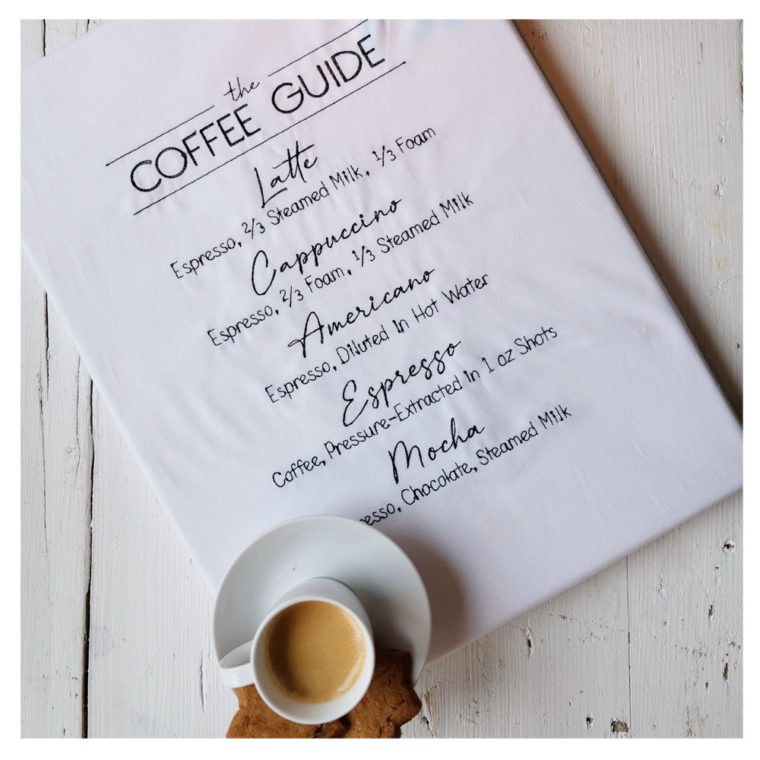 the
COFFEE GUIDE
Latte
Espresso, 2/3 Steamed Milk, 1/3 Foam
Cappuccino
Espresso, 2/3 Foam, 1/3 Steamed Milk
Americano
Espresso, Diluted in Hot Water
Espresso
Coffee, Pressure-Extracted in 1 oz Shots
Mocha
Chocolate, Steamed Milk